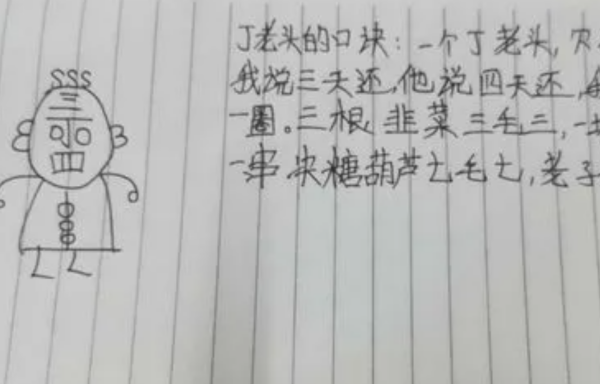 丁老头的口诀：一个丁老头，欠
我说三天还，他说四天还，
一圈。三根韭菜三毛三，一
一串糖葫芦七毛七，老子